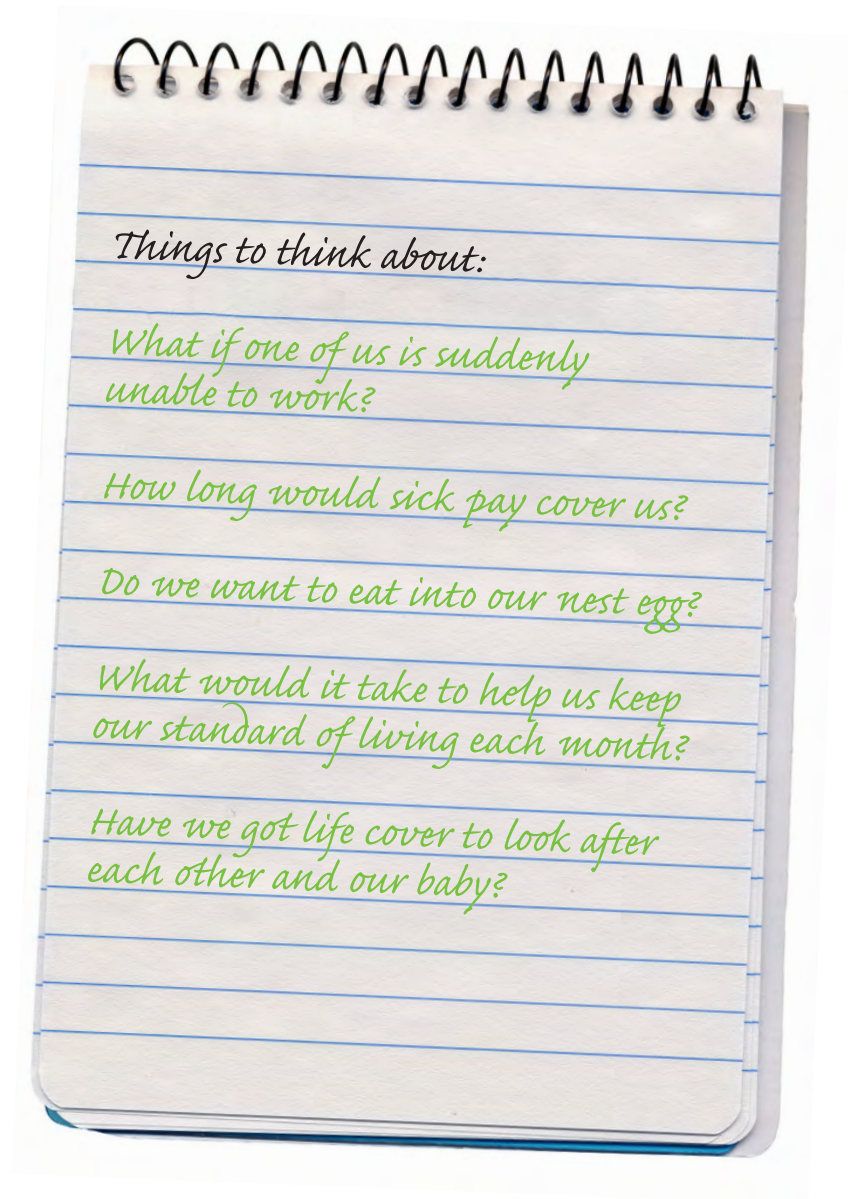 Things to think about:
What if one of us is suddenly
unable to work?
How long would sick pay cover us?
Do we want to eat into our nest egg?
What would it take to help us keep
our standard of living each month?
Have we got life cover to look after
each other and our baby?